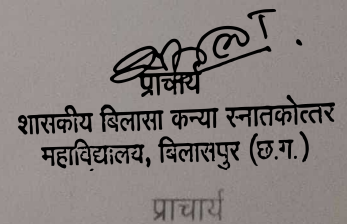 प्राचार्य
शासकीय बिलासा कन्या स्नातकोत्तर
महाविद्यालय, बिलासपुर (छ.ग.)
प्राचार्य